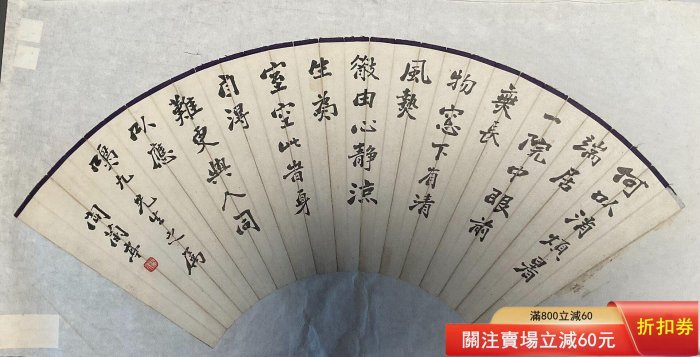 何以消煩暑
端居
一院中眼前
無長
物窓下有清
風熱
散由心静涼
生為
室空此旹身
自得
難更與人同
以應
鳴九先生之屬
聞蘭亭
滿800立減60
關注賣場立減60元
折扣券